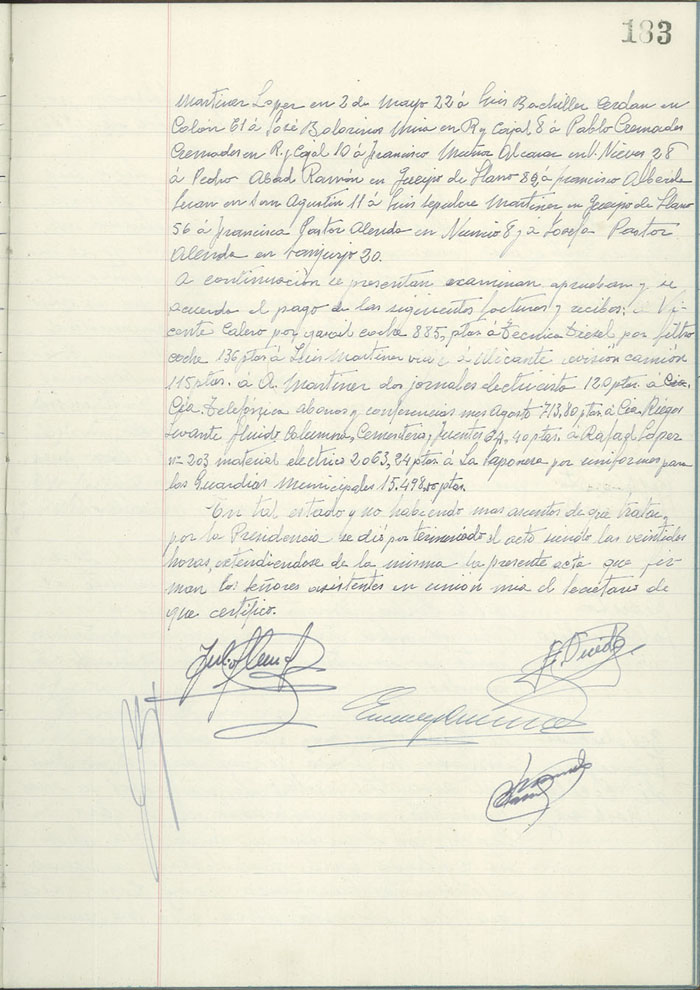 183
Martinez Lopez en 2 de Mayo 22 á Luis Bachiller Cerdan en
Colón 61 á José Bolorinos Mira en R y Cajal 8 á Pablo Cremades
Cremades en R. y Cajal 10 á Francisco Muñoz Alcaraz en V. Nieves 28
á Pedro Abad Ramón en Queipo de Llano 82 á Francisco Alberola
Juan en San Agustin 11 á Luis Sepulcre Martinez en Queipo de Llano
56 á Francisca Pastor Alenda en Nuncio 8 y á Josefa Pastor
Alenda en 20.
A continuación se presentan examinan aprueban y se
acuerda el pago de las siguientes facturas y recibos: a Vi-
cente Calero por coche 885, ptas á Tecnica Diesel por filtro
coche 136 ptas á Luis Martinez viaje a Alicante revisión camión
115 ptas. á A. Martinez dos jornales electricista 120 ptas. á Cia.
Cia Telefónica abonos y conferencias mes Agosto 713,80 ptas. á Cia Riegos
Levante fluido Columna, Cementerio, Fuentes 64,40 ptas. á Rafael Lopez
nº 203 material electrico 2063,24 ptas á La Japonesa por uniformes para
los Guardias Municipales 15.498,50 ptas.
En tal estado y no habiendo mas asuntos de que tratar,
por la Presidencia se dió por terminado el acto siendo las veintidos
horas, extendiendose de la misma la presente acta que fir-
man los señores asistentes en unión mia el Secretario de
que certifico.